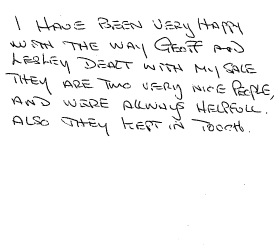 I HAVE BEEN VERY HAPPY
WITH THE WAY GEOFF AND
LESLEY DEALT WITH MY SALE
THEY ARE TWO VERY NICE PEOPLE,
AND WERE ALWAYS HELPFULL.
ALSO THEY KEPT IN TOUCH.